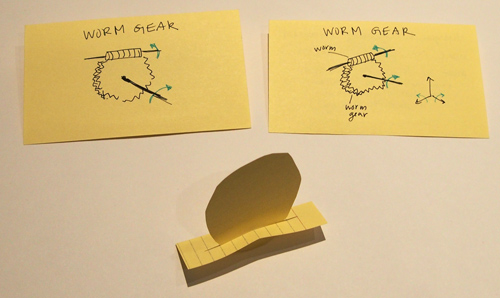 WORM GEAR
WORM GEAR
worm
worm
gear